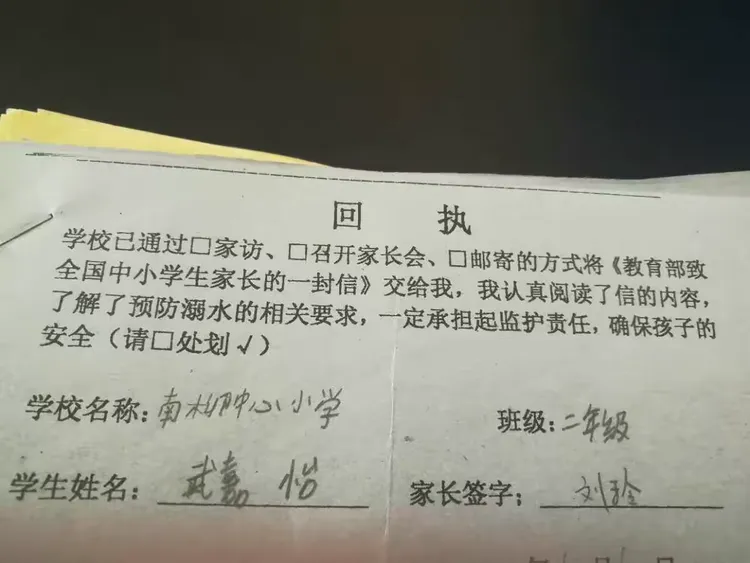 回 执
学校已通过□家访、□召开家长会、□邮寄的方式将《教育部致
全国中小学生家长的一封信》交给我，我认真阅读了信的内容，
了解了预防溺水的相关要求，一定承担起监护责任，确保孩子的
安全（请□处划√）
学校名称：南柳中心小学 班级：二年级
学生姓名：武嘉怡 家长签字：刘玲